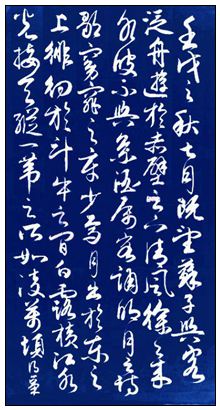 壬戌之秋七月既望蘇子與客
泛舟遊於赤壁之下清風徐來
水波不興舉酒屬客誦明月之詩
歌窈窕之章少焉月出於東之
上徘徊於斗牛之間白露橫江水
光接天縱一葦之所如凌萬頃之茫